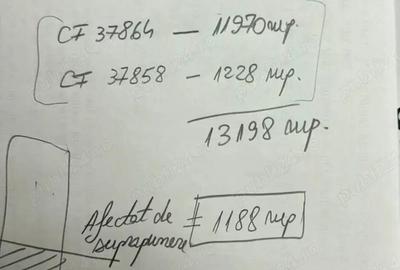 CF 37864 — 11970 mp.
CF 37858 — 1228 mp.
13198 mp.
Afectat de = 1188 mp
suprapunere